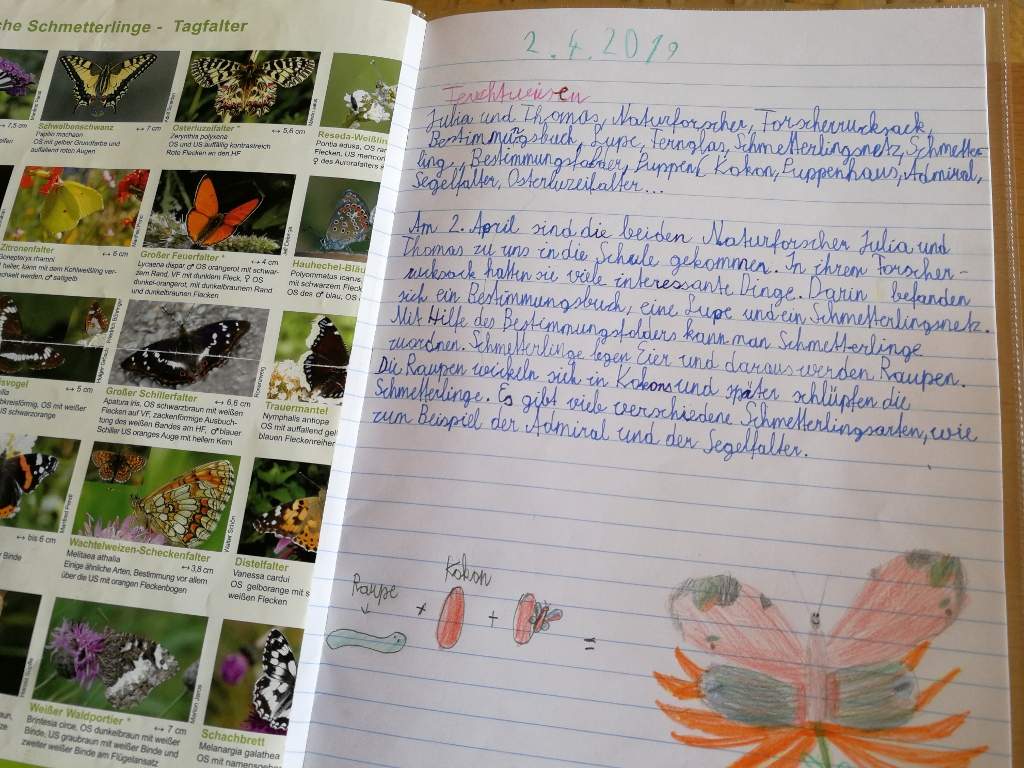 che Schmetterlinge - Tagfalter
↔ 7,5 cm
Schwalbenschwanz
↔ 7 cm
Papilio machaon
OS mit gelber Grundfarbe und
auffallend roten Augen
Osterluzeifalter *
↔ 5,6 cm
Zerynthia polyxena
OS und US auffällig kontrastreich
Rote Flecken an den HF
Reseda-Weißlin
Pontia edusa, OS
Flecken, US
♀ des Aurorafalters
Zitronenfalter
↔ 6 cm
Gonepteryx rhamni
heller, kann mit dem Kohlweißling ver-
wechselt werden, ♂ sattgelb
Großer Feuerfalter *
↔ 4 cm
Lycaena dispar, ♂ OS orangerot mit schwar-
zem Rand, VF mit dunklem Fleck, ♀ OS
dunkel-orangerot, mit dunkelbraunem Rand
und dunkelbraunen Flecken
Hauhechel-Bläu
Polyommatus icarus,
mit schwarzem Fleck
OS des ♂ blau, OS
isvogel
↔ 5 cm
OS mit weißer
US schwarzorange
Großer Schillerfalter
↔ 6,6 cm
Apatura iris, OS schwarzbraun mit weißen
Flecken auf VF, zackenförmige Ausbuch-
tung des weißen Bandes am HF, ♂ blauer
Schiller US oranges Auge mit hellem Kern
Trauermantel
Nymphalis antiopa
OS mit auffallend gel
blauen Fleckenreihen
↔ bis 6 cm
Binde
Wachtelweizen-Scheckenfalter
↔ 3,8 cm
Melitaea athalia
Einige ähnliche Arten, Bestimmung vor allem
über die US mit orangen Fleckenbogen
Distelfalter
Vanessa cardui
OS gelborange mit s
weißen Flecken
Weißer Waldportier *
↔ 7 cm
Brintesia circe, OS dunkelbraun mit weißer
Binde, US graubraun mit weißer Binde und
zweiter weißer Binde am Flügelansatz
Schachbrett
Melanargia galathea
OS mit namensgeben
2.4.2019
Feuchtwiesen
Julia und Thomas, Naturforscher, Forscherrucksack,
Bestimmungsbuch, Lupe, Fernglas, Schmetterlingsnetz, Schmetter-
ling, Bestimmungsfolder, Puppen( Kokon, Puppenhaus, Admiral,
Segelfalter, Osterluzeifalter...
Am 2. April sind die beiden Naturforscher Julia und
Thomas zu uns in die Schule gekommen. In ihrem Forscher-
rucksack hatten sie viele interessante Dinge. Darin befanden
sich ein Bestimmungsbuch, eine Lupe und ein Schmetterlingsnetz.
Mit Hilfe des Bestimmungsfolders kann man Schmetterlinge
zuordnen. Schmetterlinge legen Eier und daraus werden Raupen.
Die Raupen wickeln sich in Kokons und später schlüpfen die
Schmetterlinge. Es gibt viele verschiedene Schmetterlingsarten, wie
zum Beispiel der Admiral und der Segelfalter.
Raupe
Kokon
+ + =